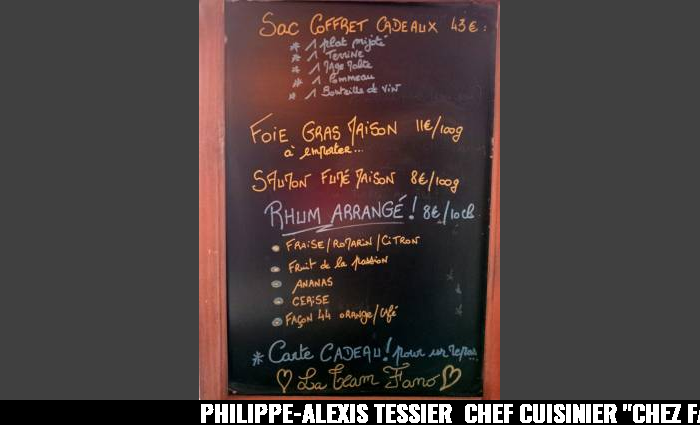 Sac Coffret Cadeaux 43€ :
* 1 plat mijoté
* 1 Terrine
* 1
* 1 Pommeau
* 1 Bouteille de vin
Foie Gras Maison 11€/100g
à emporter...
Saumon Fumé Maison 8€/100g
Rhum Arrangé ! 8€/10cl
Fraise/Romarin/Citron
Fruit de la passion
Ananas
Cerise
Façon 44 orange/café
* Carte CADEAU ! pour un repas
La Team Fano
PHILIPPE-ALEXIS TESSIER CHEF CUISINIER "CHEZ FA